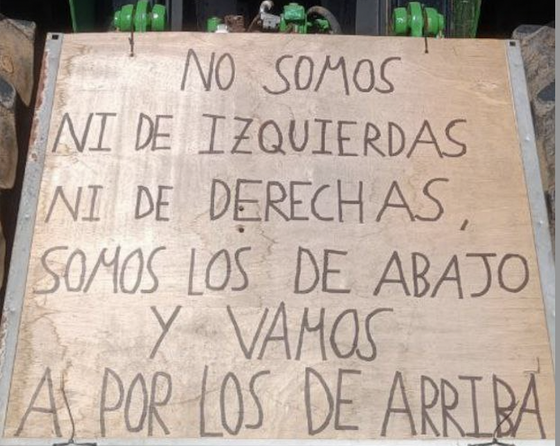 NO SOMOS
NI DE IZQUIERDAS
NI DE DERECHAS,
SOMOS LOS DE ABAJO
Y VAMOS
A POR LOS DE ARRIBA